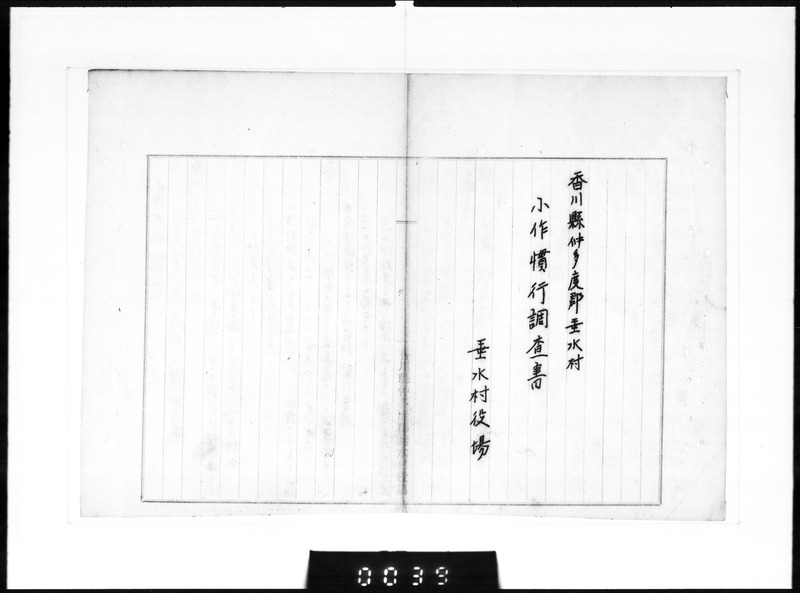 香川縣仲多度郡垂水村
小作慣行調査書
垂水村役場
0039